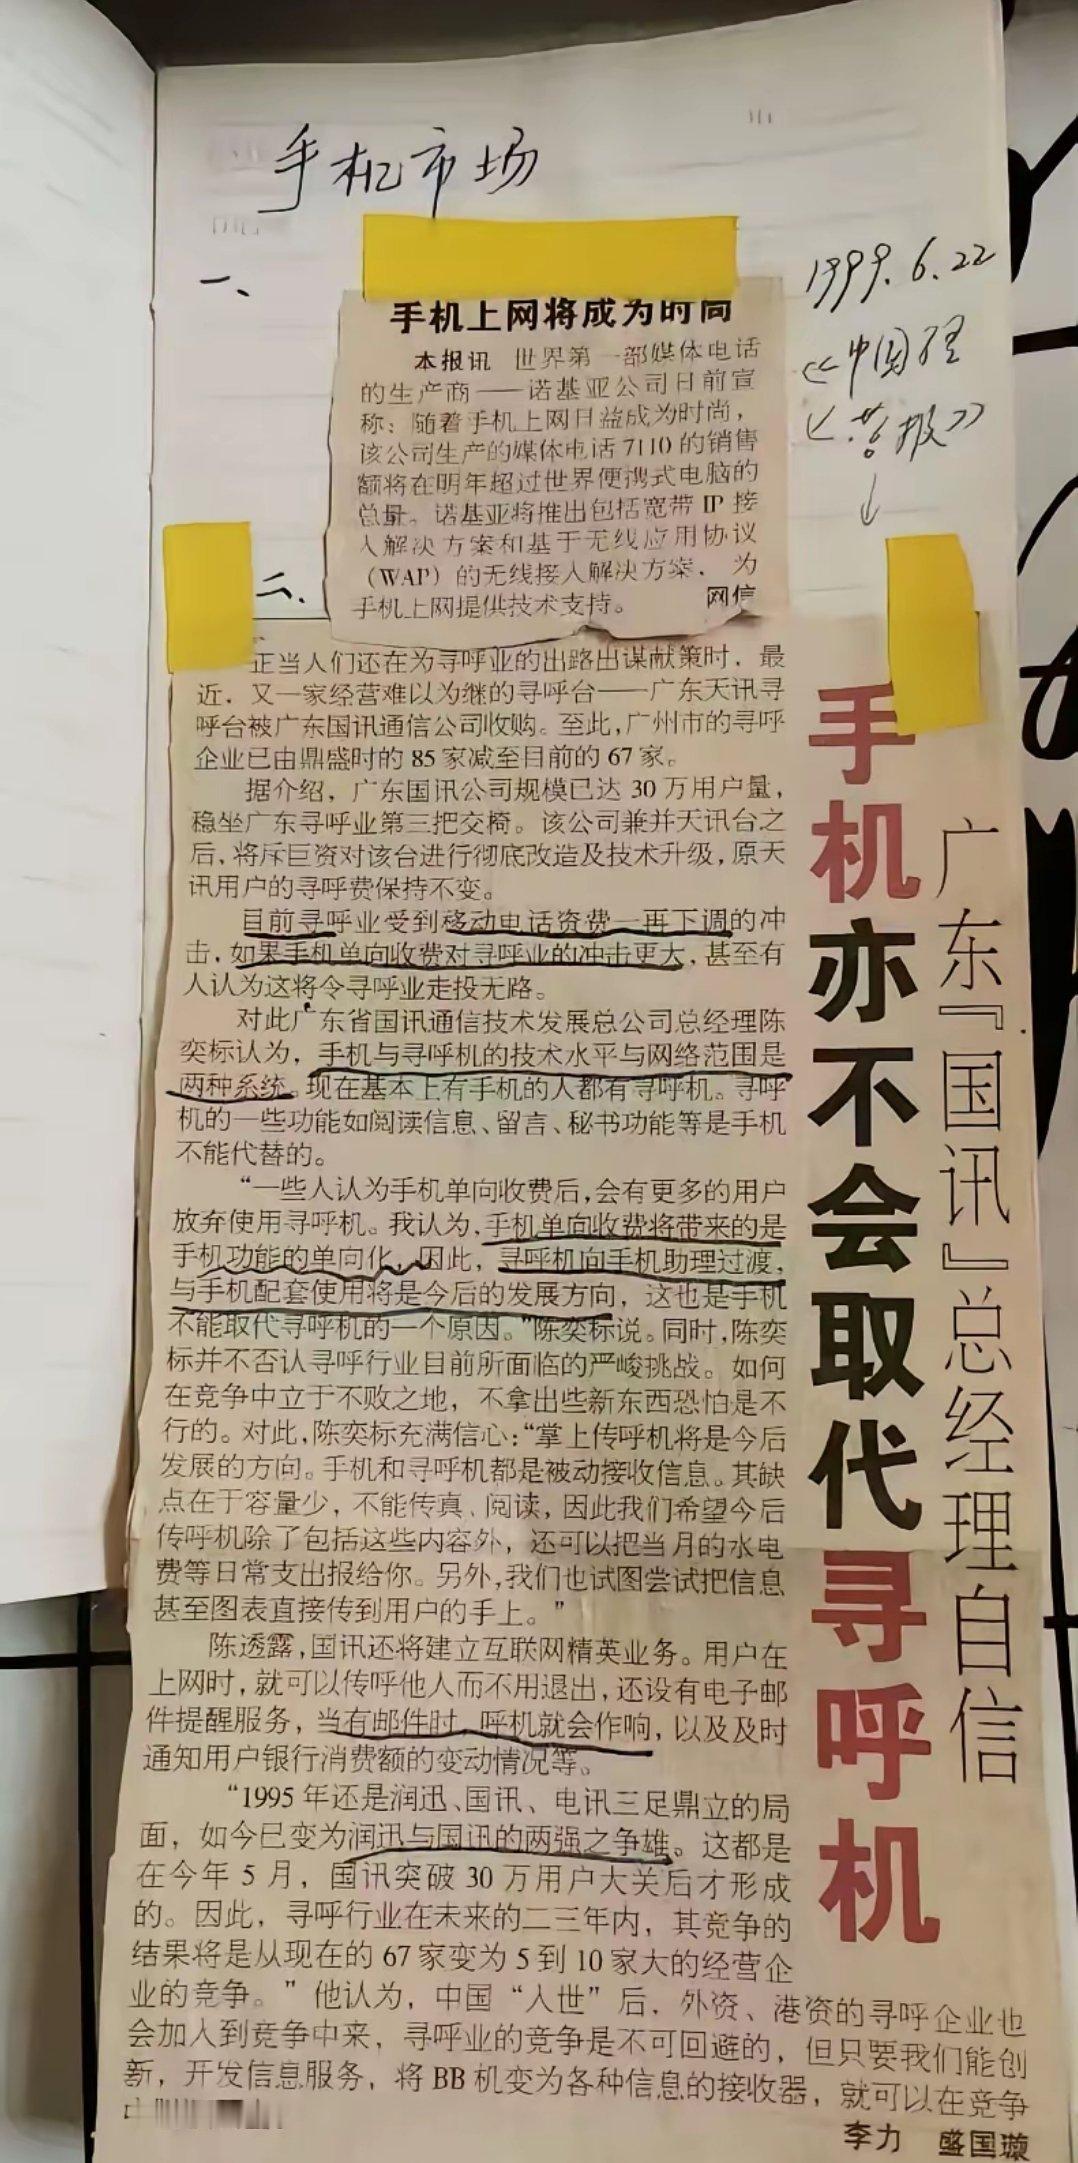 手机市场
一、
手机上网将成为时尚
1999.6.22
《中国经
营报》
本报讯 世界第一部媒体电话
的生产商——诺基亚公司日前宣
称：随着手机上网日益成为时尚，
该公司生产的媒体电话7110的销售
额将在明年超过世界便携式电脑的
总量。诺基亚将推出包括宽带IP接
入解决方案和基于无线应用协议
（WAP）的无线接入解决方案，为
手机上网提供技术支持。 网信
二、
手机亦不会取代寻呼机
广东『国讯』总经理自信
正当人们还在为寻呼业的出路出谋献策时，最
近，又一家经营难以为继的寻呼台——广东天讯寻
呼台被广东国讯通信公司收购。至此，广州市的寻呼
企业已由鼎盛时的85家减至目前的67家。
据介绍，广东国讯公司规模已达30万用户量，
稳坐广东寻呼业第三把交椅。该公司兼并天讯台之
后，将斥巨资对该台进行彻底改造及技术升级，原天
讯用户的寻呼费保持不变。
目前寻呼业受到移动电话资费一再下调的冲
击，如果手机单向收费对寻呼业的冲击更大，甚至有
人认为这将令寻呼业走投无路。
对此广东省国讯通信技术发展总公司总经理陈
奕标认为，手机与寻呼机的技术水平与网络范围是
两种系统。现在基本上有手机的人都有寻呼机。寻呼
机的一些功能如阅读信息、留言、秘书功能等是手机
不能代替的。
“一些人认为手机单向收费后，会有更多的用户
放弃使用寻呼机。我认为，手机单向收费将带来的是
手机功能的单向化，因此，寻呼机向手机助理过渡，
与手机配套使用将是今后的发展方向，这也是手机
不能取代寻呼机的一个原因。”陈奕标说。同时，陈奕
标并不否认寻呼行业目前所面临的严峻挑战。如何
在竞争中立于不败之地，不拿出些新东西恐怕是不
行的。对此，陈奕标充满信心：“掌上传呼机将是今后
发展的方向。手机和寻呼机都是被动接收信息。其缺
点在于容量少，不能传真、阅读，因此我们希望今后
传呼机除了包括这些内容外，还可以把当月的水电
费等日常支出报给你。另外，我们也试图尝试把信息
甚至图表直接传到用户的手上。”
陈透露，国讯还将建立互联网精英业务。用户在
上网时，就可以传呼他人而不用退出，还设有电子邮
件提醒服务，当有邮件时，呼机就会作响，以及及时
通知用户银行消费额的变动情况等。
“1995年还是润迅、国讯、电讯三足鼎立的局
面，如今已变为润迅与国讯的两强之争雄。这都是
在今年5月，国讯突破30万用户大关后才形成
的。因此，寻呼行业在未来的二三年内，其竞争的
结果将是从现在的67家变为5到10家大的经营企
业的竞争。”他认为，中国“入世”后，外资、港资的寻呼企业也
会加入到竞争中来，寻呼业的竞争是不可回避的，但只要我们能创
新，开发信息服务，将BB机变为各种信息的接收器，就可以在竞争
中
李力 盛国璇